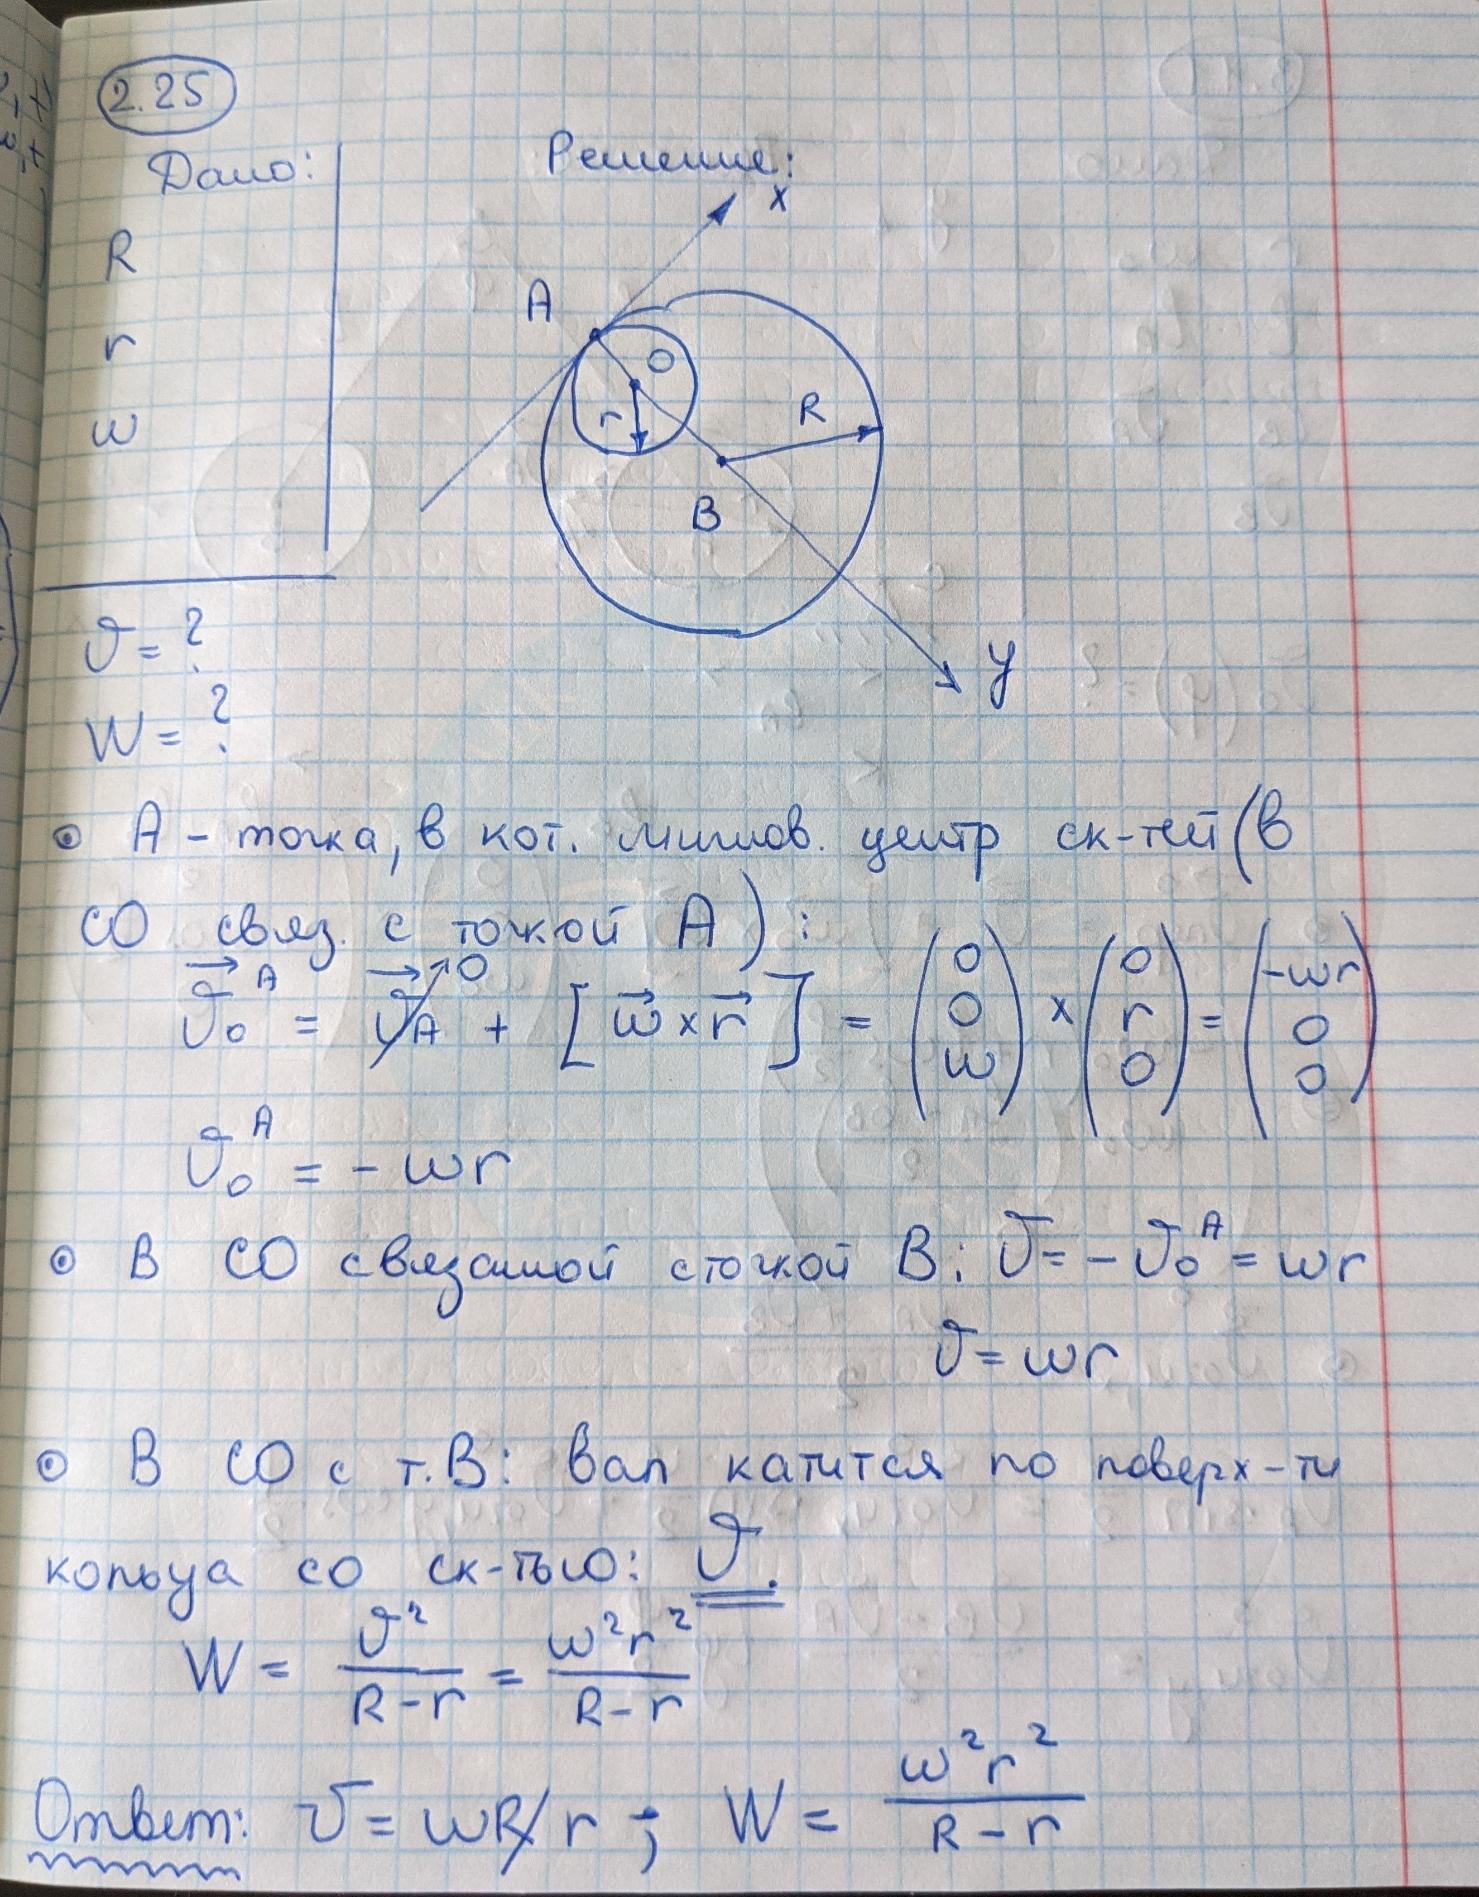 2.25
Дано:
Решение:
R
r
ω
x
A
O
r
R
B
y
v = ?
W = ?
• A - точка, в кот. мгнов. центр ск-тей (в
СО связ. с точкой A):
v⃗₀ᴬ = v⃗A↗0 + [ω⃗ × r⃗] = (0 0 ω) × (0 r 0) = (-ωr 0 0)
v₀ᴬ = - ωr
• В СО связанной с точкой B: v = - v₀ᴬ = ωr
v = ωr
• В СО с т. B: Вал катится по поверх-ти
кольца со ск-тью: v.
W = v²/(R-r) = ω²r²/(R-r)
Ответ: v = ωr ; W = ω²r²/(R-r)